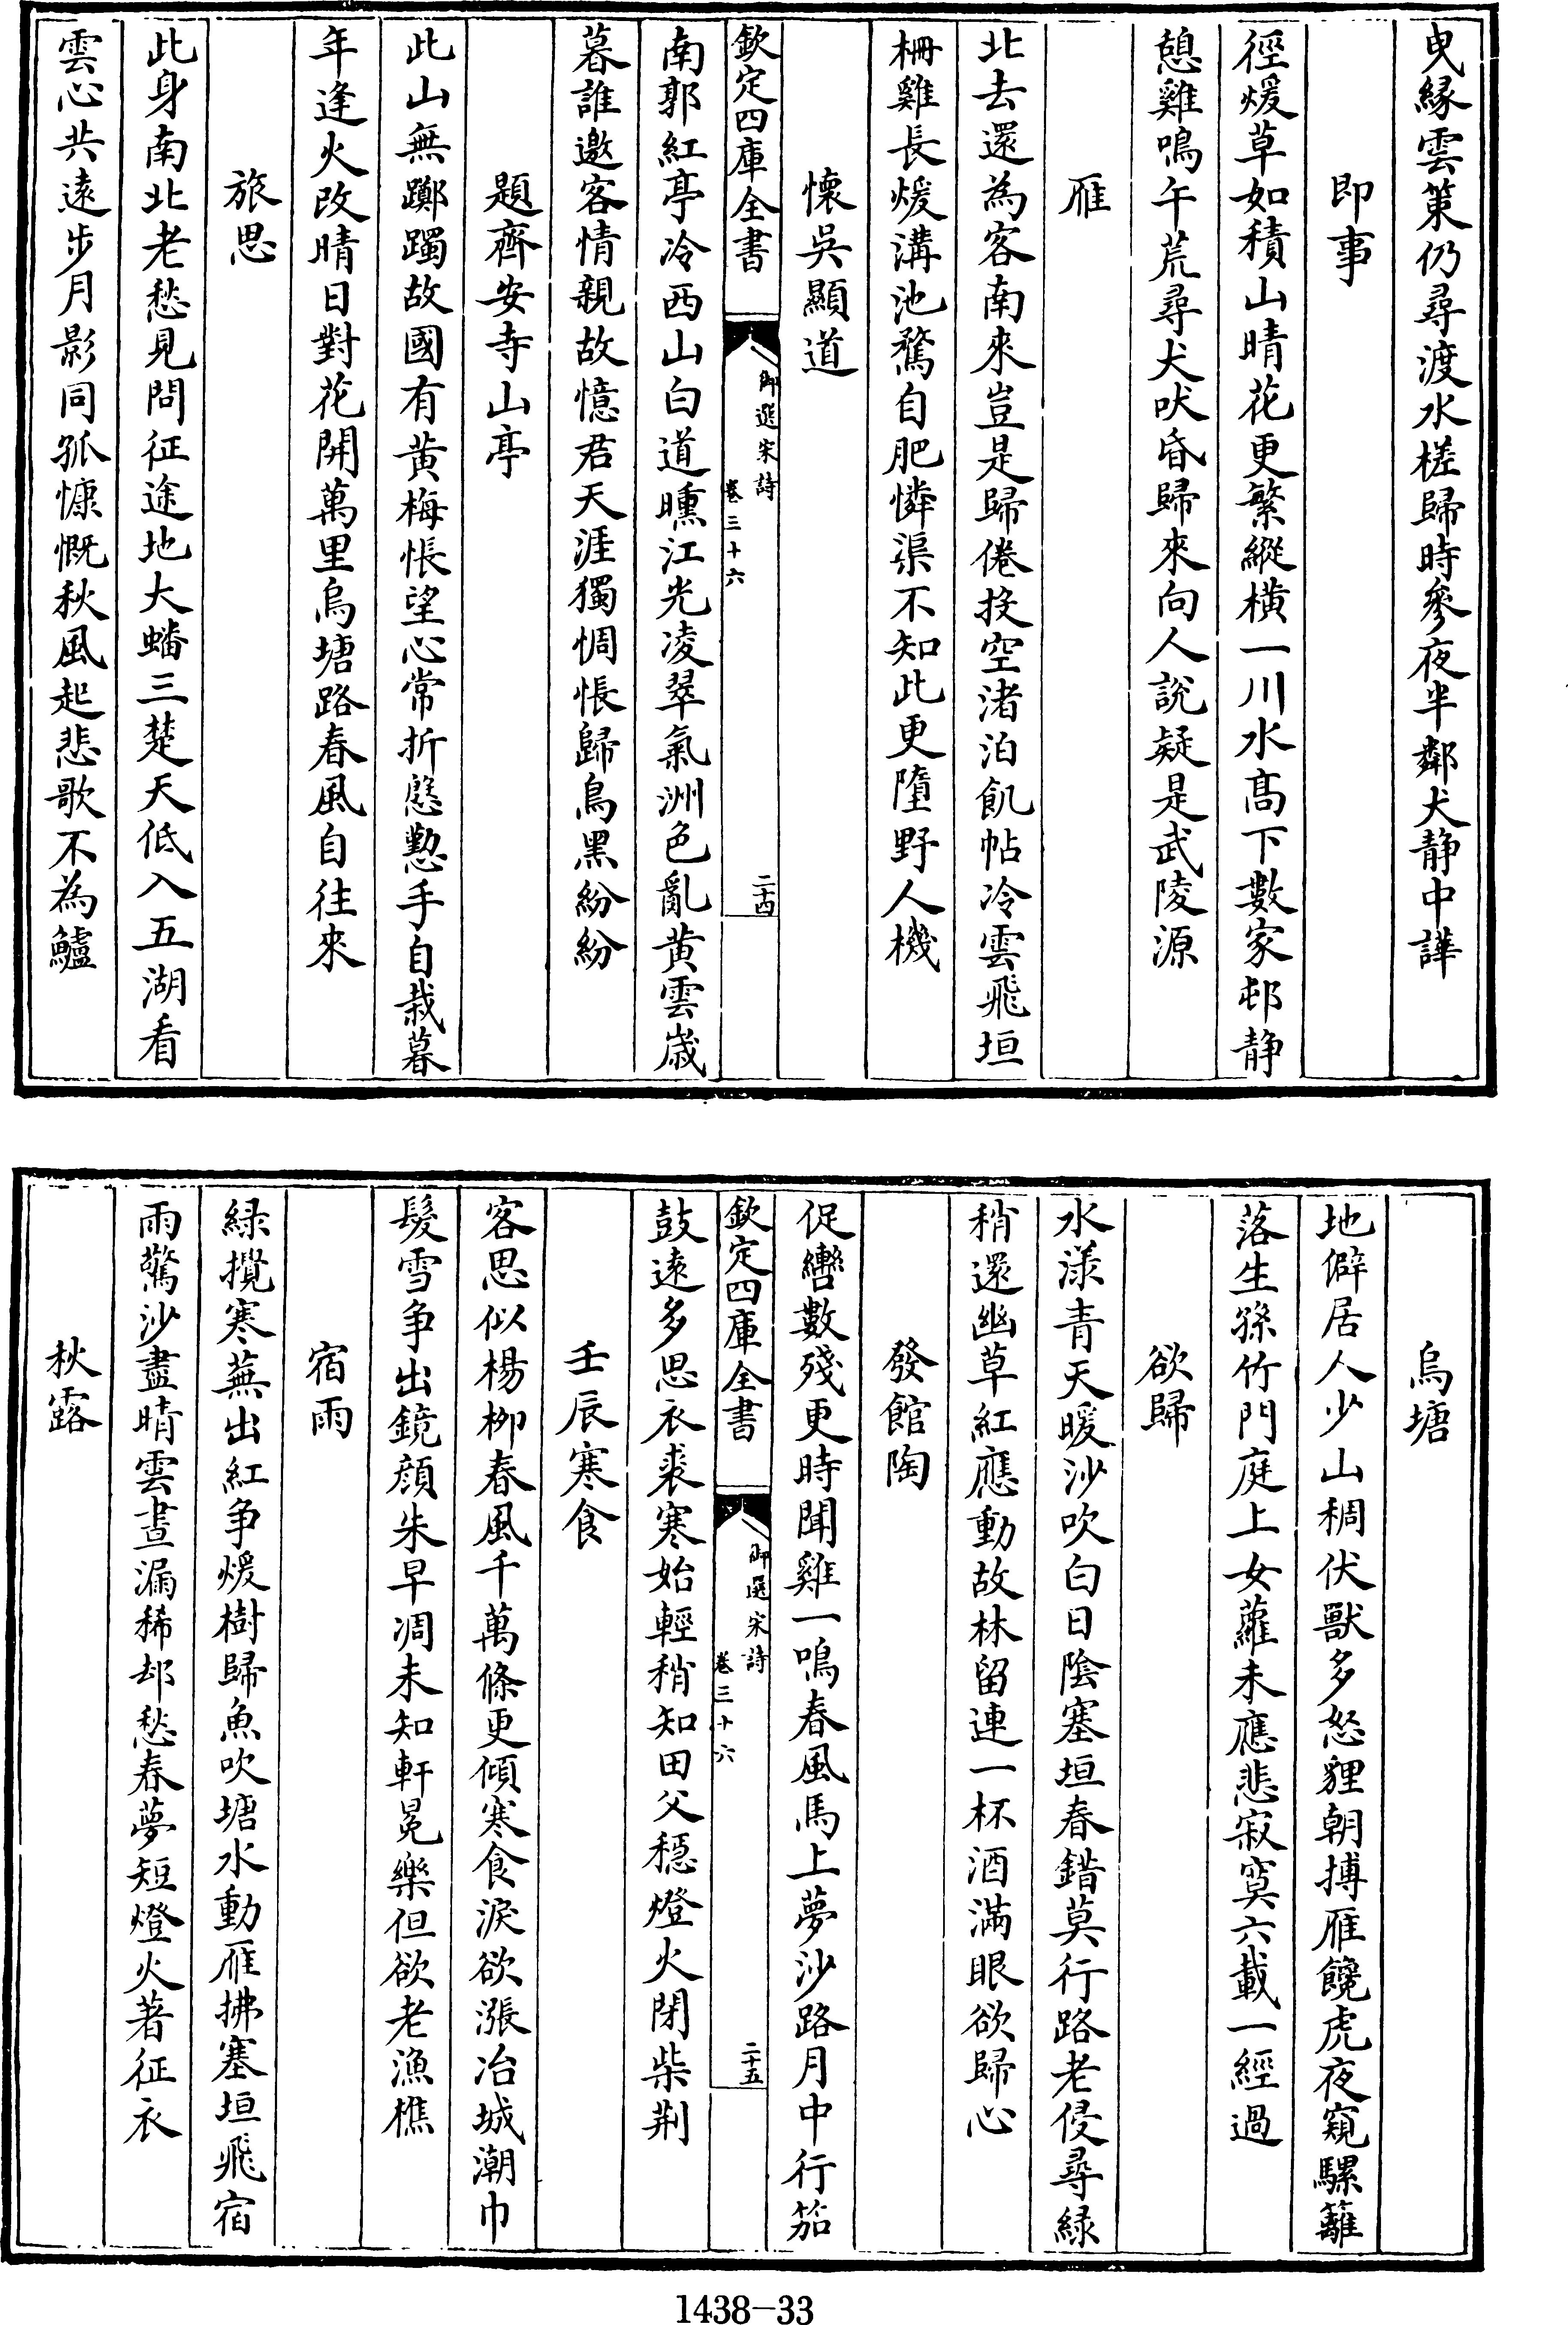 曳緣雲策仍尋渡水槎歸時參夜半鄰犬静中譁
即事
徑煖草如積山晴花更繁縱橫一川水髙下數家邨静
憩雞鳴午荒尋犬吠昏歸來向人說疑是武陵源
雁
北去還為客南來豈是歸倦投空渚泊飢帖冷雲飛垣
栅雞長煖溝池鶩自肥憐渠不知此更墮野人機
懷吳顯道
欽定四庫全書
御選宋詩
卷三十六
二十四
南郭紅亭冷西山白道曛江光凌翠氣洲色亂黄雲歲
暮誰邀客情親故憶君天涯獨惆悵歸鳥黑紛紛
題齊安寺山亭
此山無躑躅故國有黄梅悵望心常折慇懃手自栽暮
年逢火改晴日對花開萬里烏塘路春風自往來
旅思
此身南北老愁見問征途地大蟠三楚天低入五湖看
雲心共遠步月影同孤慷慨秋風起悲歌不為鱸
烏塘
地僻居人少山稠伏獸多怒貍朝搏雁饞虎夜窺騾籬
落生孫竹門庭上女蘿未應悲寂寞六載一經過
欲歸
水漾青天暖沙吹白日陰塞垣春錯莫行路老侵尋緑
稍還幽草紅應動故林留連一杯酒滿眼欲歸心
發館陶
促轡數殘更時聞雞一鳴春風馬上夢沙路月中行笳
欽定四庫全書
御選宋詩
卷三十六
二十五
鼓遠多思衣裘寒始輕稍知田父穩燈火閉柴荆
壬辰寒食
客思似楊栁春風千萬條更傾寒食淚欲漲冶城潮巾
髮雪争出鏡顔朱早凋未知軒冕樂但欲老漁樵
宿雨
緑攪寒蕪出紅争煖樹歸魚吹塘水動雁拂塞垣飛宿
雨驚沙盡晴雲晝漏稀却愁春夢短燈火著征衣
秋露
1438-33